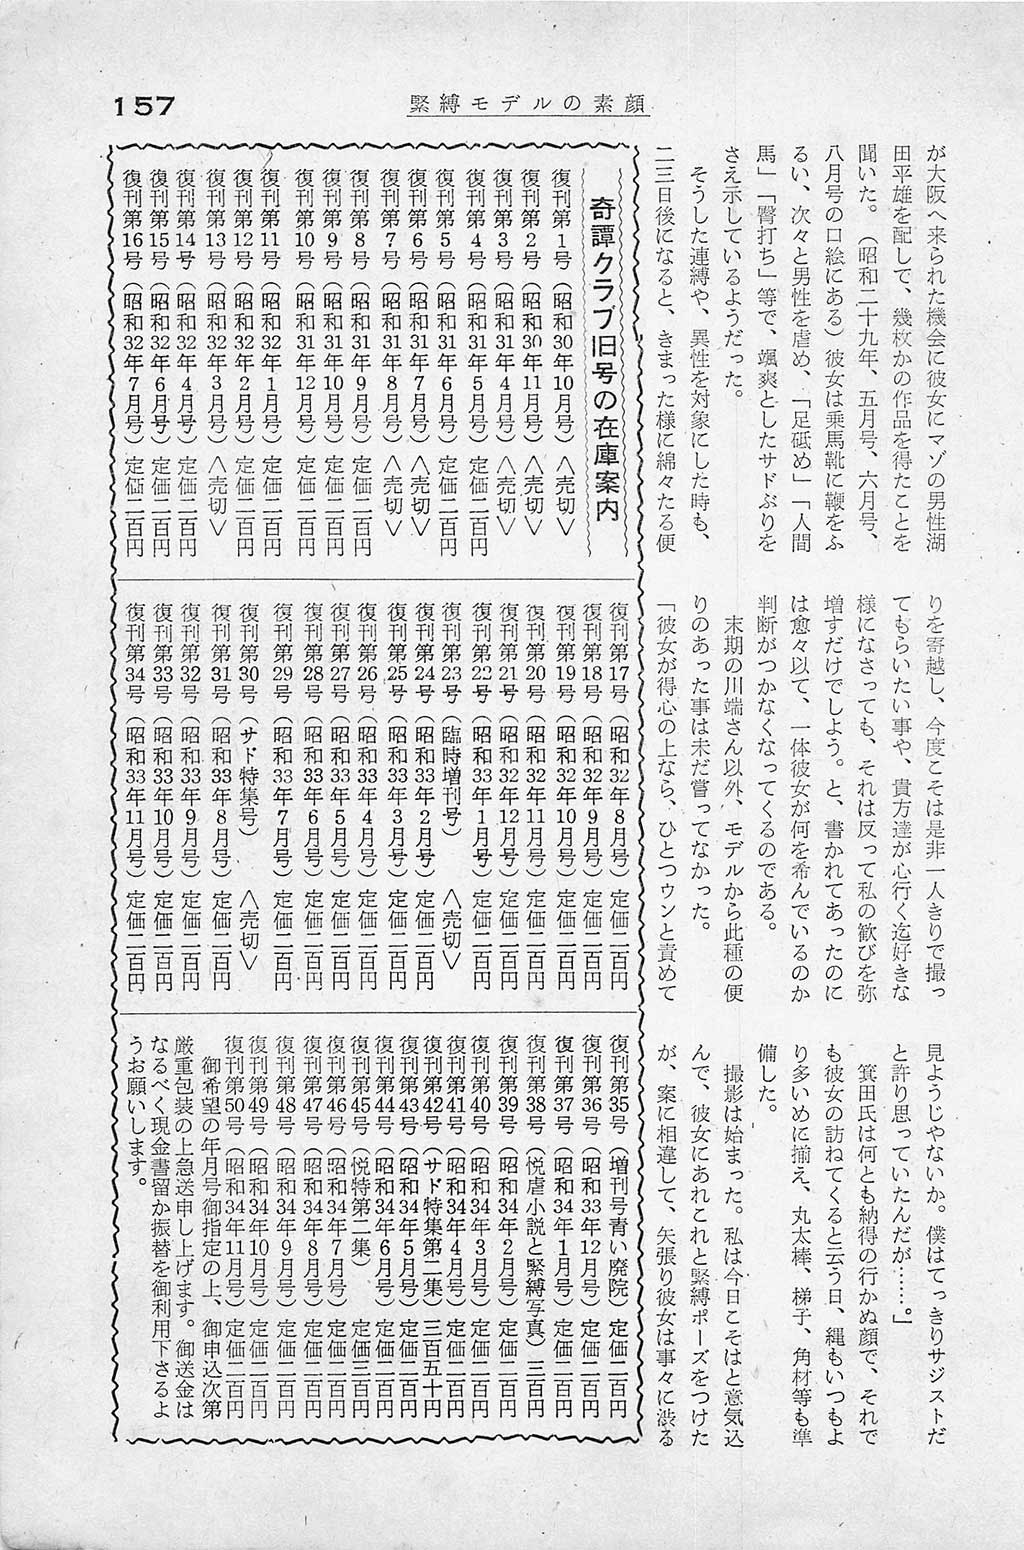 157
緊縛モデルの素顔
が大阪へ来られた機会に彼女にマゾの男性湖
田平雄を配して、幾枚かの作品を得たことを
聞いた。（昭和二十九年、五月号、六月号、
八月号の口絵にある）彼女は乗馬靴に鞭をふ
るい、次々と男性を虐め、「足砥め」「人間
馬」「臀打ち」等で、颯爽としたサドぶりを
さえ示しているようだった。
そうした連縛や、異性を対象にした時も、
二三日後になると、きまった様に綿々たる便
りを寄越し、今度こそは是非一人きりで撮っ
てもらいたい事や、貴方達が心行く迄好きな
様になさっても、それは反って私の歓びを弥
増すだけでしよう。と、書かれてあったのに
は愈々以て、一体彼女が何を希んでいるのか
判断がつかなくなってくるのである。
末期の川端さん以外、モデルから此種の便
りのあった事は未だ嘗ってなかった。
「彼女が得心の上なら、ひとつウンと責めて
見ようじやないか。僕はてっきりサジストだ
と許り思っていたんだが……。」
箕田氏は何とも納得の行かぬ顔で、それで
も彼女の訪ねてくると云う日、縄もいつもよ
り多いめに揃え、丸太棒、梯子、角材等も準
備した。
撮影は始まった。私は今日こそはと意気込
んで、彼女にあれこれと緊縛ポーズをつけた
が、案に相違して、矢張り彼女は事々に渋る
奇譚クラブ旧号の在庫案内
復刊第1号（昭和30年10月号）＜売切＞
復刊第2号（昭和30年11月号）＜売切＞
復刊第3号（昭和31年4月号）＜売切＞
復刊第4号（昭和31年5月号）定価二百円
復刊第5号（昭和31年6月号）定価二百円
復刊第6号（昭和31年7月号）＜売切＞
復刊第7号（昭和31年8月号）＜売切＞
復刊第8号（昭和31年9月号）定価二百円
復刊第9号（昭和31年10月号）定価二百円
復刊第10号（昭和31年12月号）定価二百円
復刊第11号（昭和32年1月号）定価二百円
復刊第12号（昭和32年2月号）定価二百円
復刊第13号（昭和32年3月号）＜売切＞
復刊第14号（昭和32年4月号）定価二百円
復刊第15号（昭和32年6月号）定価二百円
復刊第16号（昭和32年7月号）定価二百円
復刊第17号（昭和32年8月号）定価二百円
復刊第18号（昭和32年9月号）定価二百円
復刊第19号（昭和32年10月号）定価二百円
復刊第20号（昭和32年11月号）定価二百円
復刊第21号（昭和32年12月号）定価二百円
復刊第22号（昭和33年1月号）定価二百円
復刊第23号（臨時増刊号）＜売切＞
復刊第24号（昭和33年2月号）定価二百円
復刊第25号（昭和33年3月号）定価二百円
復刊第26号（昭和33年4月号）定価二百円
復刊第27号（昭和33年5月号）定価二百円
復刊第28号（昭和33年6月号）定価二百円
復刊第29号（昭和33年7月号）定価二百円
復刊第30号（サド特集号）＜売切＞
復刊第31号（昭和33年8月号）定価二百円
復刊第32号（昭和33年9月号）定価二百円
復刊第33号（昭和33年10月号）定価二百円
復刊第34号（昭和33年11月号）定価二百円
復刊第35号（増刊号青い廃院）定価二百円
復刊第36号（昭和33年12月号）定価二百円
復刊第37号（昭和34年1月号）定価二百円
復刊第38号（悦虐小説と緊縛写真）三百円
復刊第39号（昭和34年2月号）定価二百円
復刊第40号（昭和34年3月号）定価二百円
復刊第41号（昭和34年4月号）定価二百円
復刊第42号（サド特集第二集）三百五十円
復刊第43号（昭和34年5月号）定価二百円
復刊第44号（昭和34年6月号）定価二百円
復刊第45号（悦特第二集）定価三百円
復刊第46号（昭和34年7月号）定価二百円
復刊第47号（昭和34年8月号）定価二百円
復刊第48号（昭和34年9月号）定価二百円
復刊第49号（昭和34年10月号）定価二百円
復刊第50号（昭和34年11月号）定価二百円
御希望の年月号御指定の上、御申込次第
厳重包装の上急送申し上げます。御送金は
なるべく現金書留か振替を御利用下さるよ
うお願いします。